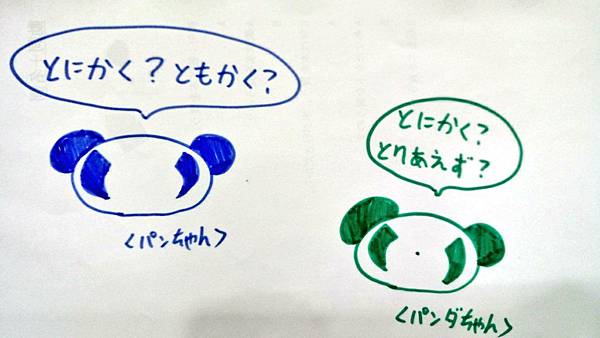 とにかく？ともかく？
<パンちゃん>
とにかく？
とりあえず？
<パンダちゃん>